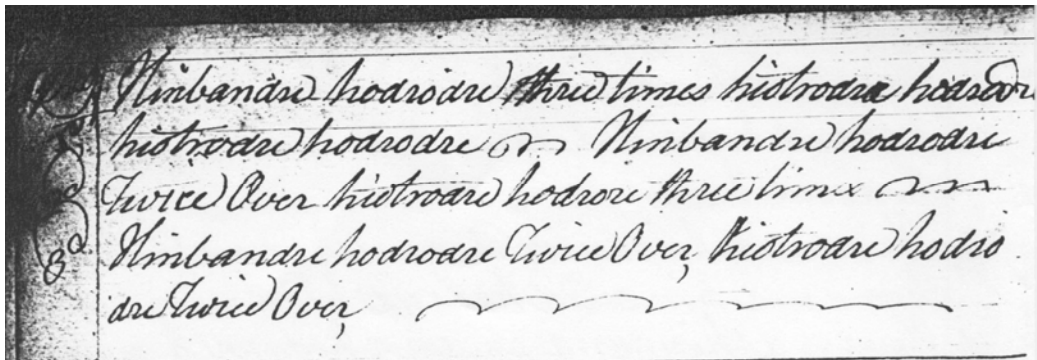 Hinbandre hodrodre three times hiotrodre hodrodre
hiotrodre hodrodre Hinbandre hodrodre
Twice Over hiotrodre hodrore three times
Hinbandre hodrodre Twice Over, hiotrodre hodro
dre Twice Over,